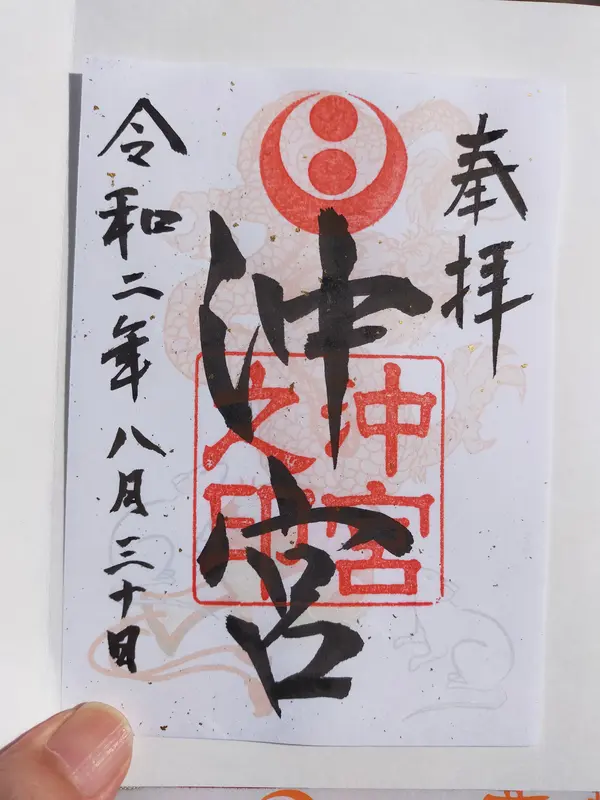 奉拝
沖宮
沖宮
之印
令和二年八月三十日